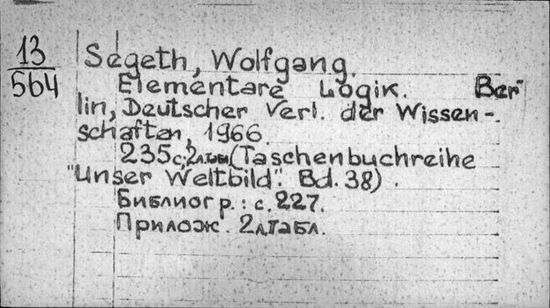 13
564
Segeth, Wolfgang.
Elementare Logik. Ber-
lin, Deutscher Verl. der Wissen-
schaften, 1966.
235 с., (Taschenbuchreihe
"Unser Weltbild". Bd. 38).
Библиогр.: с. 227.
Прилож. 2л.табл.